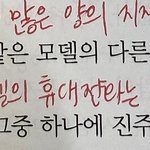 많은 양의 지
같은 모델의 다른
의 휴대전라는
그중 하나에 진주